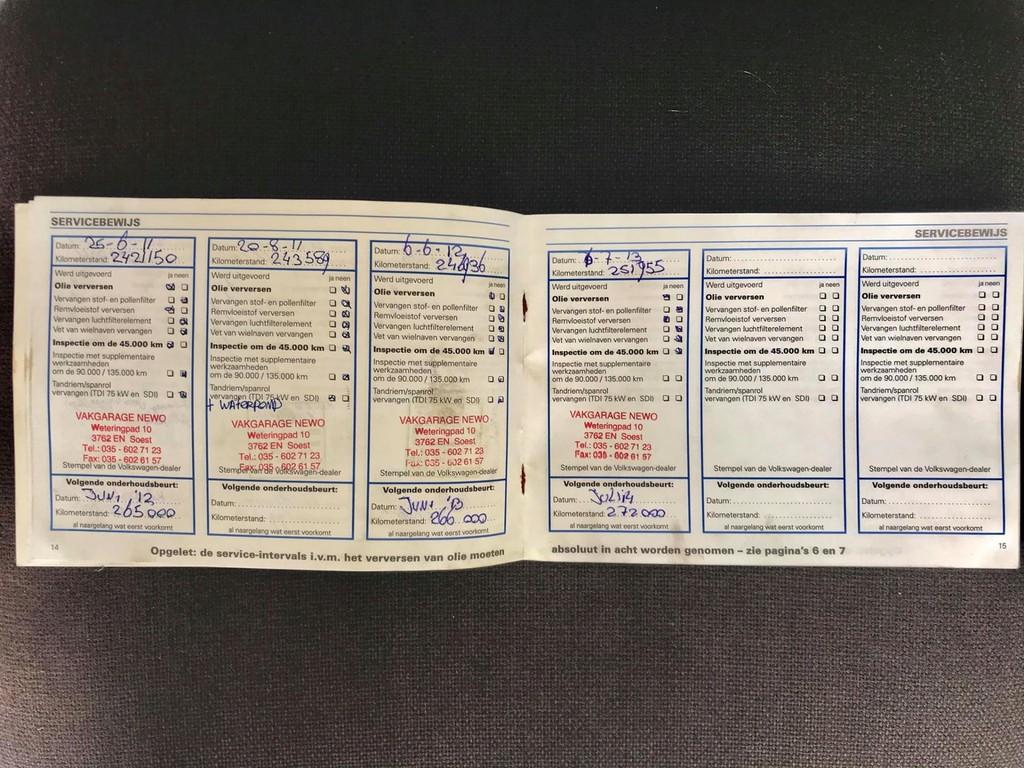 SERVICEBEWIJS
Datum: 25-6-11
Kilometerstand: 242150
Werd uitgevoerd ja neen
Olie verversen
Vervangen stof- en pollenfilter
Remvloeistof verversen
Vervangen luchtfilterelement
Vet van wielnaven vervangen
Inspectie om de 45.000 km
Inspectie met supplementaire
werkzaamheden
om de 90.000 / 135.000 km
Tandriem/spanrol
vervangen (TDI 75 kW en SDI)
VAKGARAGE NEWO
Weteringpad 10
3762 EN Soest
Tel.: 035 - 602 71 23
Fax: 035 - 602 61 57
Stempel van de Volkswagen-dealer
Volgende onderhoudsbeurt:
Datum: JUNI '12
Kilometerstand: 265000
al naargelang wat eerst voorkomt
14
Datum: 20-8-11
Kilometerstand: 243589
Werd uitgevoerd ja neen
Olie verversen
Vervangen stof- en pollenfilter
Remvloeistof verversen
Vervangen luchtfilterelement
Vet van wielnaven vervangen
Inspectie om de 45.000 km
Inspectie met supplementaire
werkzaamheden
om de 90.000 / 135.000 km
Tandriem/spanrol
vervangen (TDI 75 kW en SDI)
+ WATERPOMP
VAKGARAGE NEWO
Weteringpad 10
3762 EN Soest
Tel.: 035 - 602 71 23
Fax: 035 - 602 61 57
Stempel van de Volkswagen-dealer
Volgende onderhoudsbeurt:
Datum:
Kilometerstand:
al naargelang wat eerst voorkomt
Datum: 6-6-12
Kilometerstand:
Werd uitgevoerd ja neen
Olie verversen
Vervangen stof- en pollenfilter
Remvloeistof verversen
Vervangen luchtfilterelement
Vet van wielnaven vervangen
Inspectie om de 45.000 km
Inspectie met supplementaire
werkzaamheden
om de 90.000 / 135.000 km
Tandriem/spanrol
vervangen (TDI 75 kW en SDI)
VAKGARAGE NEWO
Weteringpad 10
3762 EN Soest
Tel.: 035 - 602 71 23
Fax: 035 - 602 61 57
Stempel van de Volkswagen-dealer
Volgende onderhoudsbeurt:
Datum: JUNI '13
Kilometerstand: 266.000
al naargelang wat eerst voorkomt
Opgelet: de service-intervals i.v.m. het verversen van olie moeten
SERVICEBEWIJS
Datum: 6-7-13
Kilometerstand: 251955
Werd uitgevoerd ja neen
Olie verversen
Vervangen stof- en pollenfilter
Remvloeistof verversen
Vervangen luchtfilterelement
Vet van wielnaven vervangen
Inspectie om de 45.000 km
Inspectie met supplementaire
werkzaamheden
om de 90.000 / 135.000 km
Tandriem/spanrol
vervangen (TDI 75 kW en SDI)
VAKGARAGE NEWO
Weteringpad 10
3762 EN Soest
Tel.: 035 - 602 71 23
Fax: 035 - 602 61 57
Stempel van de Volkswagen-dealer
Volgende onderhoudsbeurt:
Datum: JULI 14
Kilometerstand: 272000
al naargelang wat eerst voorkomt
Datum:
Kilometerstand:
Werd uitgevoerd ja neen
Olie verversen
Vervangen stof- en pollenfilter
Remvloeistof verversen
Vervangen luchtfilterelement
Vet van wielnaven vervangen
Inspectie om de 45.000 km
Inspectie met supplementaire
werkzaamheden
om de 90.000 / 135.000 km
Tandriem/spanrol
vervangen (TDI 75 kW en SDI)
Stempel van de Volkswagen-dealer
Volgende onderhoudsbeurt:
Datum:
Kilometerstand:
al naargelang wat eerst voorkomt
Datum:
Kilometerstand:
Werd uitgevoerd ja neen
Olie verversen
Vervangen stof- en pollenfilter
Remvloeistof verversen
Vervangen luchtfilterelement
Vet van wielnaven vervangen
Inspectie om de 45.000 km
Inspectie met supplementaire
werkzaamheden
om de 90.000 / 135.000 km
Tandriem/spanrol
vervangen (TDI 75 kW en SDI)
Stempel van de Volkswagen-dealer
Volgende onderhoudsbeurt:
Datum:
Kilometerstand:
al naargelang wat eerst voorkomt
absoluut in acht worden genomen – zie pagina's 6 en 7
15